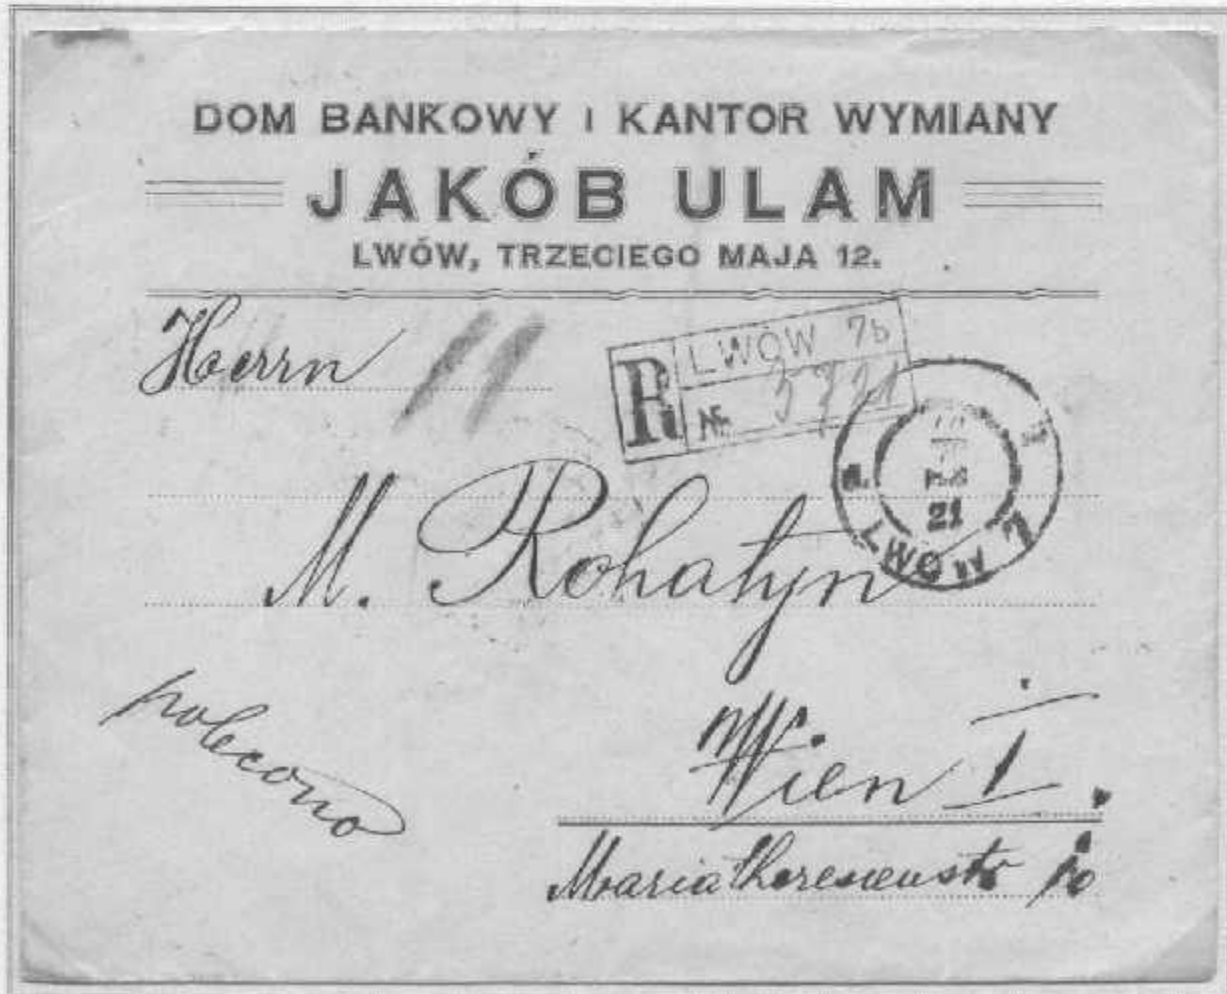 DOM BANKOWY I KANTOR WYMIANY
JAKÓB ULAM
LWÓW, TRZECIEGO MAJA 12.
Herrn
R LWÓW 7b
№
21
LWÓW 7
M. Rohatyn
polecono
Wien I.
Mariatheresienstr 10